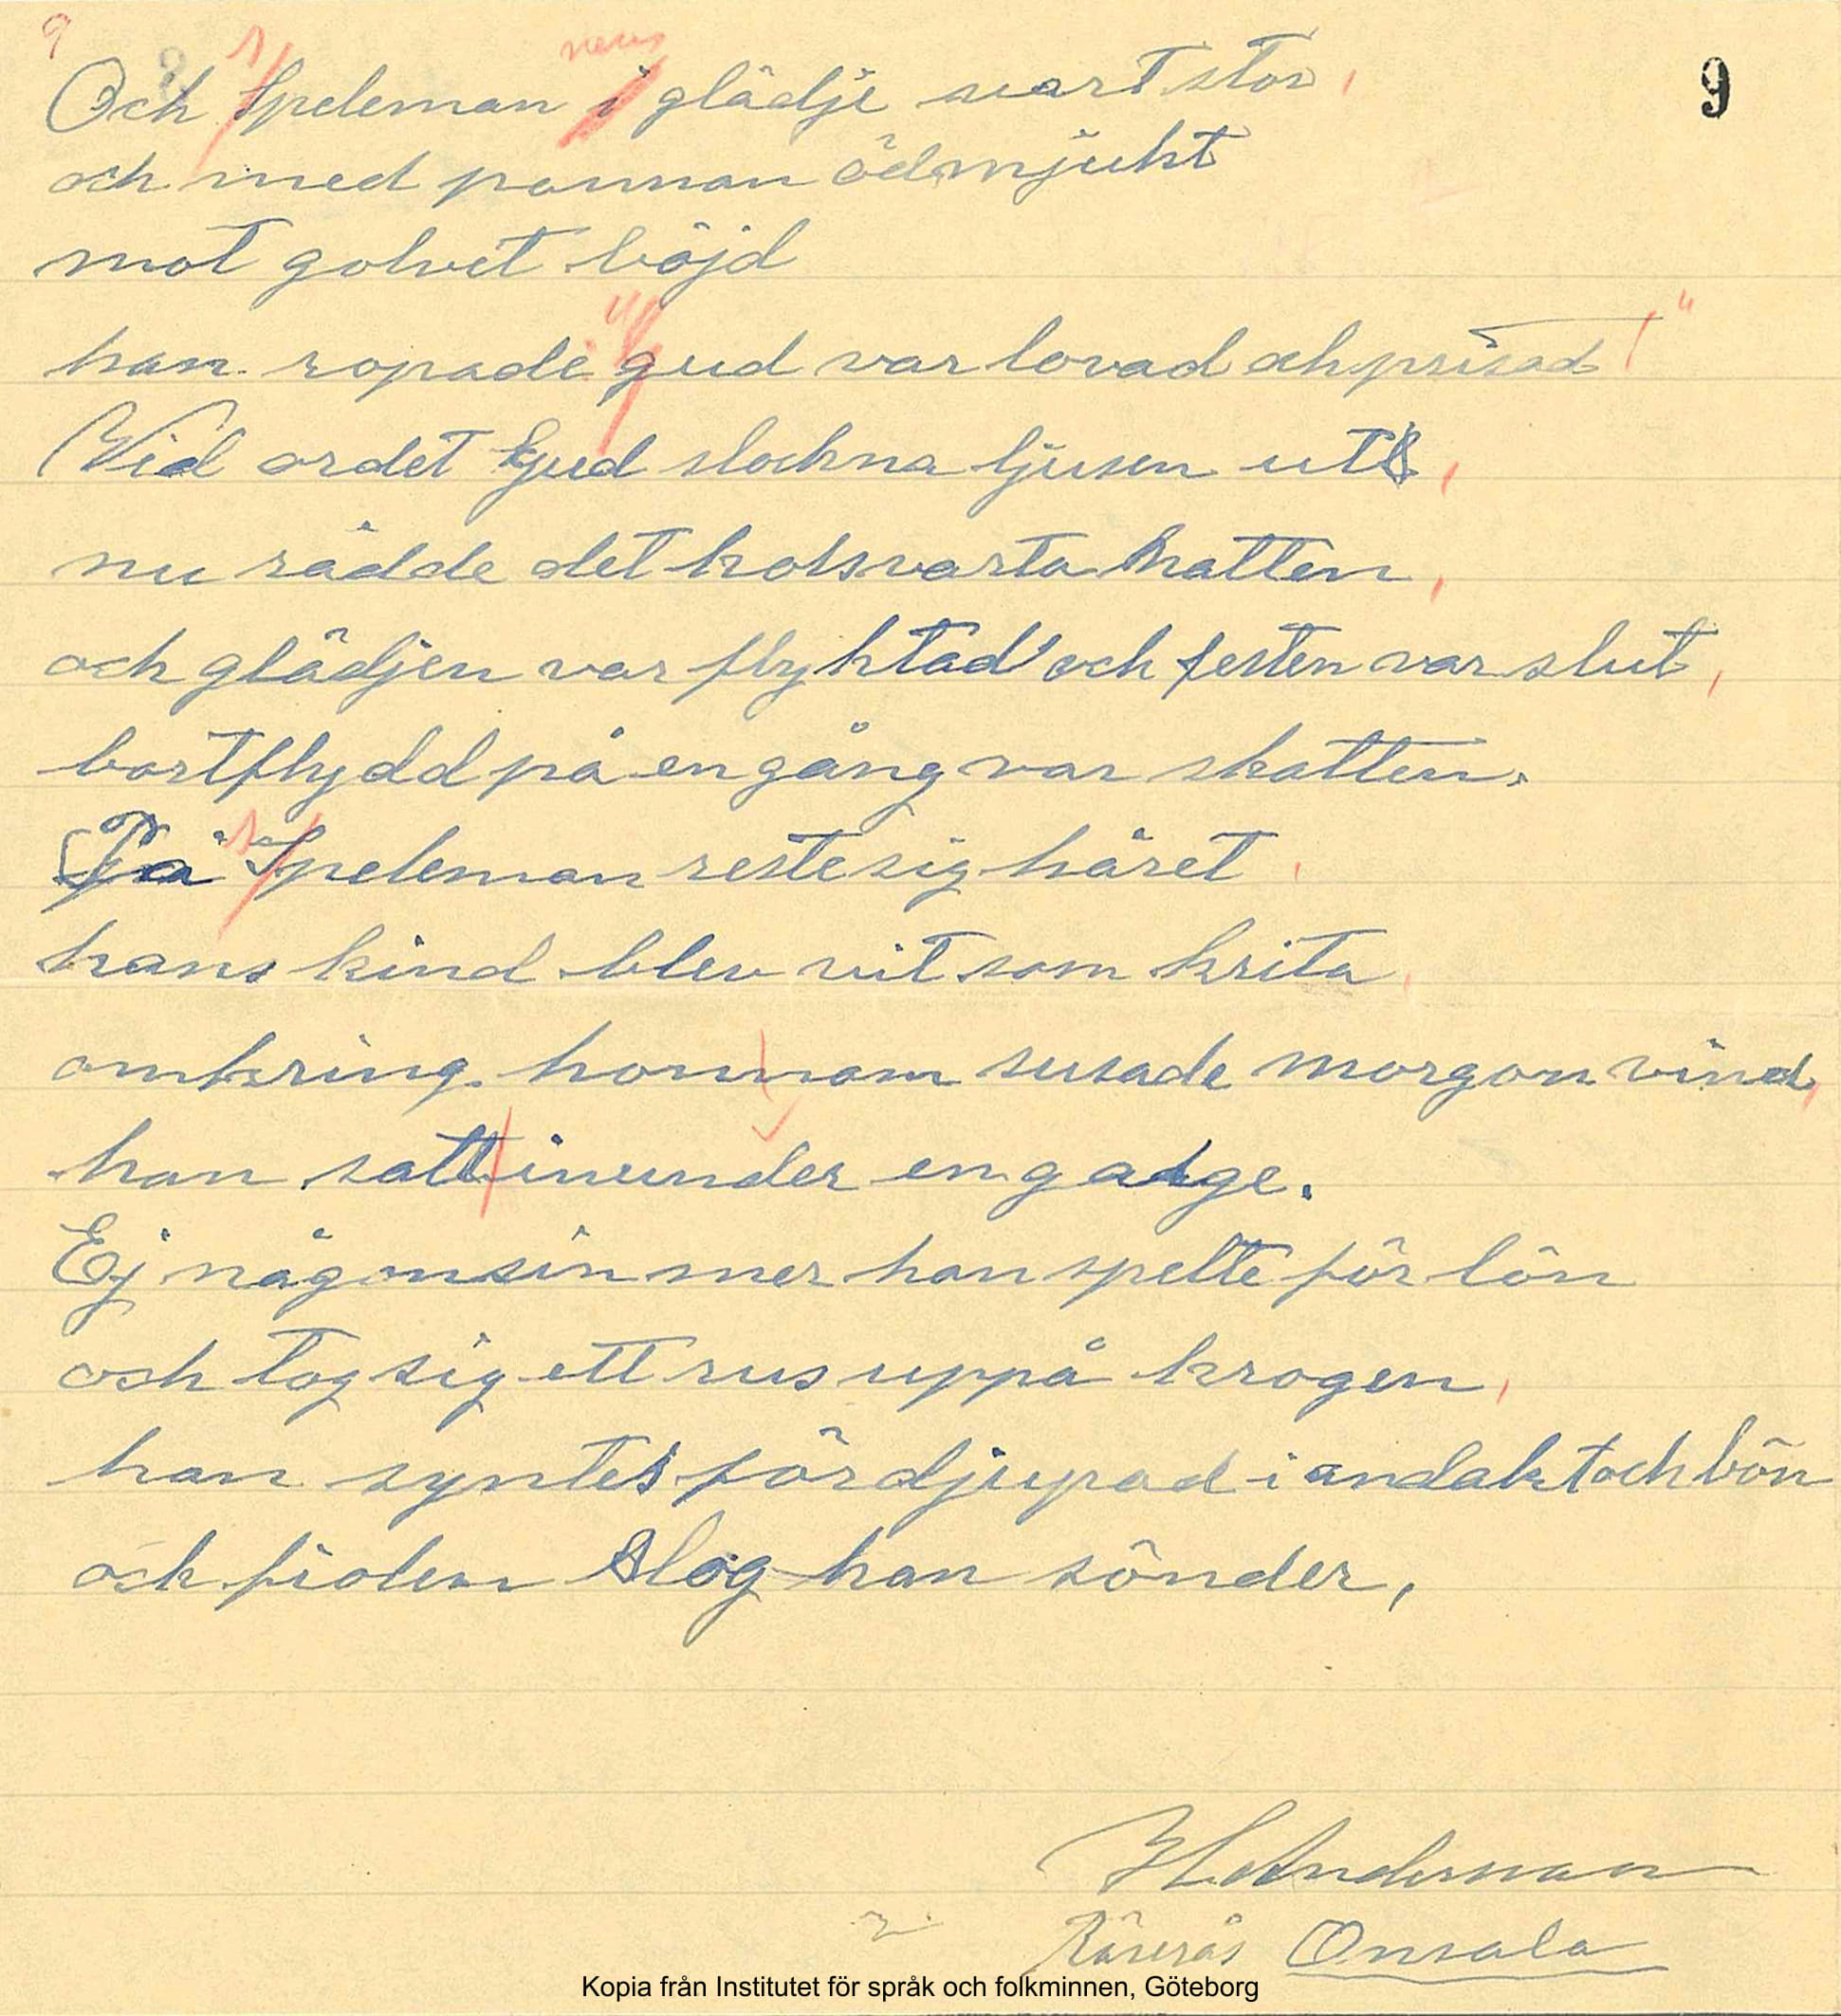 9
9
Och Speleman i glädje vart stor,
och med pannan ödmjukt
mot golvet böjd
han ropade "gud var lovad och prisad!"
Vid ordet Gud slockna ljusen ut,
nu rådde det kolsvarta natten,
och glädjen var flyktad och festen var slut,
bortflydd på en gång var skatten.
På Speleman reste sig håret,
hans kind blev vit som krita,
omkring honnom susade morgon vind,
han satt inunder en galge.
Ej någonsin mer han spelte för lön
och tog sig ett rus uppå krogen,
han syntes fördjupad i andakt och bön
och fiolen slog han sönder,
H Andersson
Råserås Onsala
Kopia från Institutet för språk och folkminnen, Göteborg